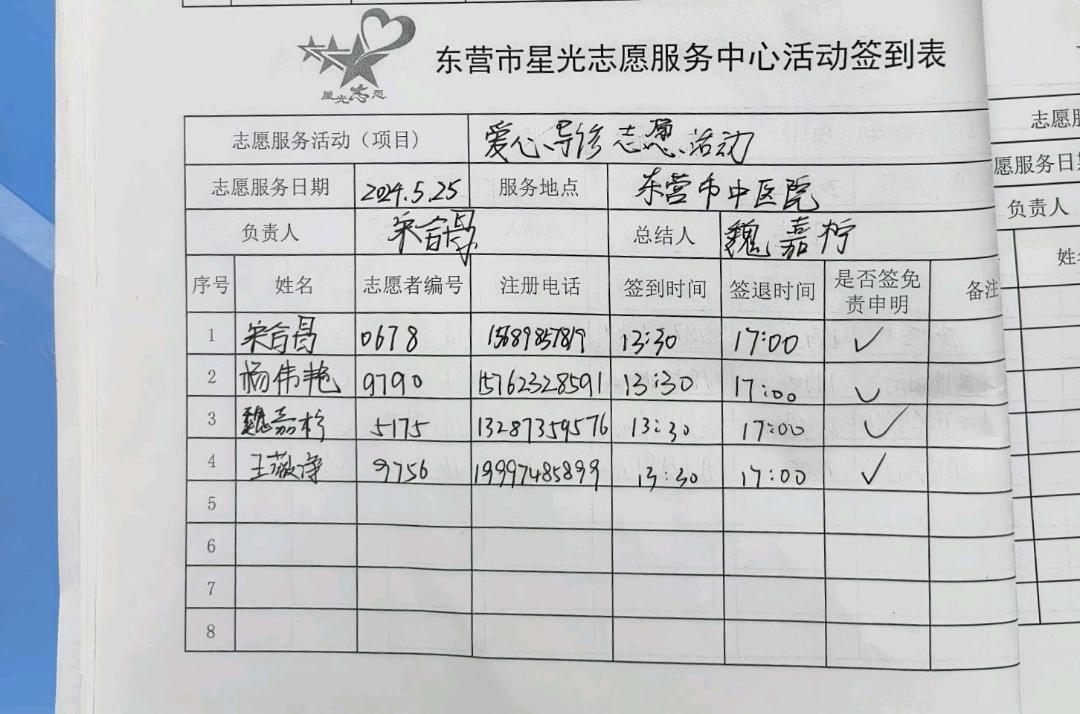 星光志愿
东营市星光志愿服务中心活动签到表
志愿服务活动（项目） 爱心导诊志愿活动
志愿服务日期 2024.5.25 服务地点 东营市中医院
负责人 总结人 魏嘉柠
序号 姓名 志愿者编号 注册电话 签到时间 签退时间 是否签免责申明 备注
1 0678 15689857819 13:30 17:00 ✓
2 杨伟艳 9790 15762328591 13:30 17:00 ✓
3 魏嘉柠 5175 13287359576 13:30 17:00 ✓
4 王薇净 9756 19997485899 13:30 17:00 ✓
5
6
7
8
志愿服
愿服务日期
负责人
姓名